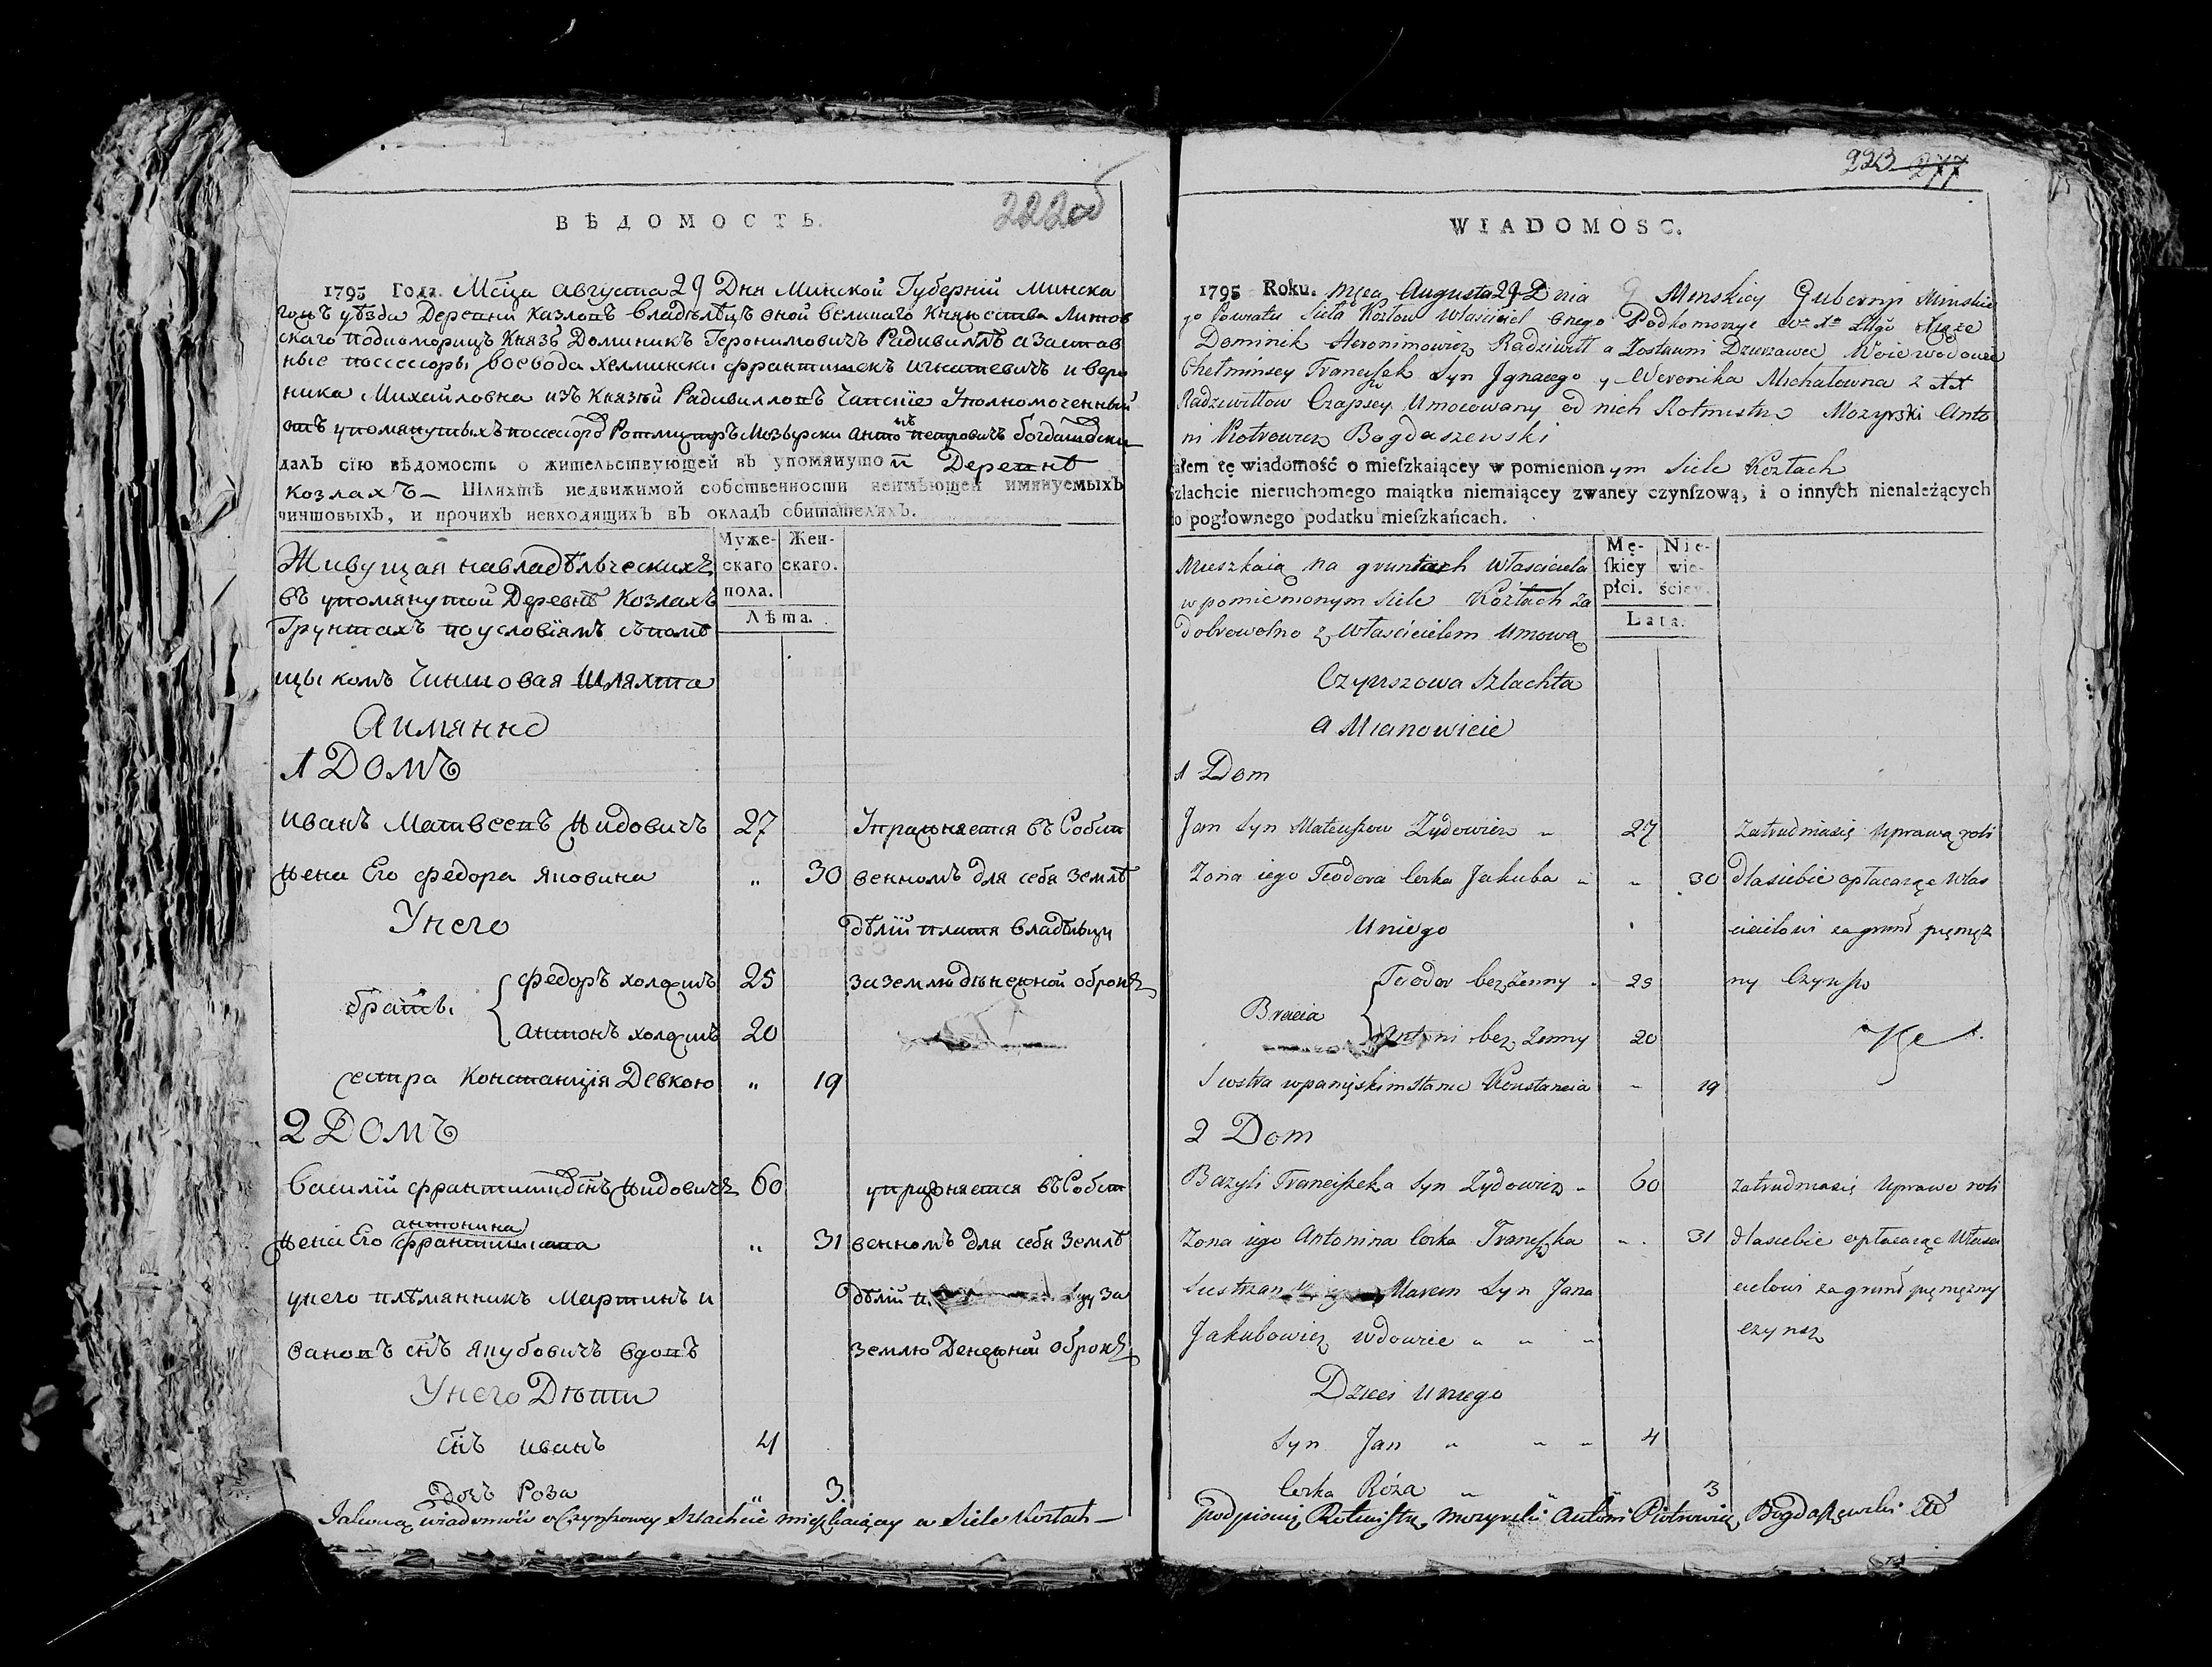 222об
ВѢДОМОСТЬ.
1795 Года. Мсца Августа 29 Дня Минской Губерніи Минска
гонъ уѣзда Деревни Казловъ владѣлецъ оной великаго Княжества Литов
скаго подкоморицъ Князь Доминикъ Геронимовичъ Радивиллъ а Застав
ные поссесоры воевода хелмински францишекъ игнатевичъ и веро
ника Михайловна изъ Князей Радивилловъ Чапскіе Уполномоченный
отъ упомянутыхъ поссесоровъ Ротмистръ Мозырски антонъ петровичъ богдашевски
далъ сію вѣдомость о жительствующей въ упомянутой Деревнѣ
Козлахъ – Шляхтѣ недвижимой собственности неимѣющей имянуемыхъ
чиншовыхъ, и прочихъ невходящихъ въ окладъ обитателяхъ.
Муже- Жен-
скаго скаго.
пола.
Лѣта.
Живущая навладѣлческихъ
въ упомянутой Деревнѣ Козлахъ
Грунтахъ по условіямъ съ помѣ
щыкомъ Чиншовая Шляхта
Аимянно
1 Домъ
иванъ Матвеевъ Жидовичъ 27 Упражняется въ Собст
жена Его федора яковина „ 30 венномъ для себя Землѣ
Унего дѣліи платя владѣльцу
браты { федоръ холостъ 25 за землю денежной оброкъ
антонъ холостъ 20
сестра Констанція Девкою „ 19
2 Домъ
Василій францишковъ снъ Жидовичъ 60 упражняется въ Собст
жена Его антонина францишкова „ 31 венномъ для себя Землѣ
унего племянникъ Мартинъ и дѣліи за
вановъ снъ якубовичъ вдовъ землю Денежной оброкъ
Унего Дѣти
снъ иванъ 4
дочъ Роза „ 3.
Takową wiadomość o Czynszowey Szlachcie mieszkaiącey w Siele Kozłach –
223 277
WIADOMOSC.
1795 Roku. Mca Augusta 29 Dnia Minskiey Gubernyi Minskie
go Powiatu Sieła Kozłow Właściciel onego Podkomorzyc Wo Xo Litgo Xiąże
Dominik Heronimowicz Radziwiłł a Zostawni Dzierzawce Woiewodowie
Chełminscy Franciszek Syn Jgnacego y Weronika Michałowna z XX
Radziwiłłow Czapscy Umocowany od nich Rotmistrz Mozyrski Anto
ni Piotrowicz Bogdaszewski
ałem tę wiadomość o mieſzkaiącey w pomienionym Siele Kozłach
zlachcie nieruchomego maiątku niemaiącey zwaney czynſzową, i o innych nienależących
o pogłownego podatku mieſzkańcach.
Mę- Nie-
ſkiey wie-
płci. ściey.
Lata.
Mieszkaią na gruntach Własciciela
w pomienionym Siele Kozłach za
dobrowolno z Właścicielem Umową
Czynszowa Szlachta
a Mianowicie
1 Dom
Jan Syn Mateuszow Zydowicz „ 27 Zatrudniasię Uprawą roli
Zona iego Teodora Corka Jakuba „ „ 30 dlasiebie opłacaiąc Włas
Uniego cicielowi za grunt pienięż
Bracia { Teodor bez Zenny 25 ny Czynsz
Antoni bez Zenny 20
Siostra w panięskim stanie Konstancia „ 19
2 Dom
Bazyli Franciszka Syn Zydowicz „ 60 Zatrudniasię Uprawo roli
Zona iego Antonina Corka Franciszka „ 31 dlasiebie opłacaiąc Własci
Siestrzan Marcin Syn Jana cielowi za grunt pieniężny
Jakubowicz wdowiec „ „ „ czynsz
Dzieci Uniego
Syn Jan „ „ „ 4
Corka Róża „ „ 3
Podpisuię Rotmistrz Mozyrski Antoni Piotrowicz Bogdaszewski